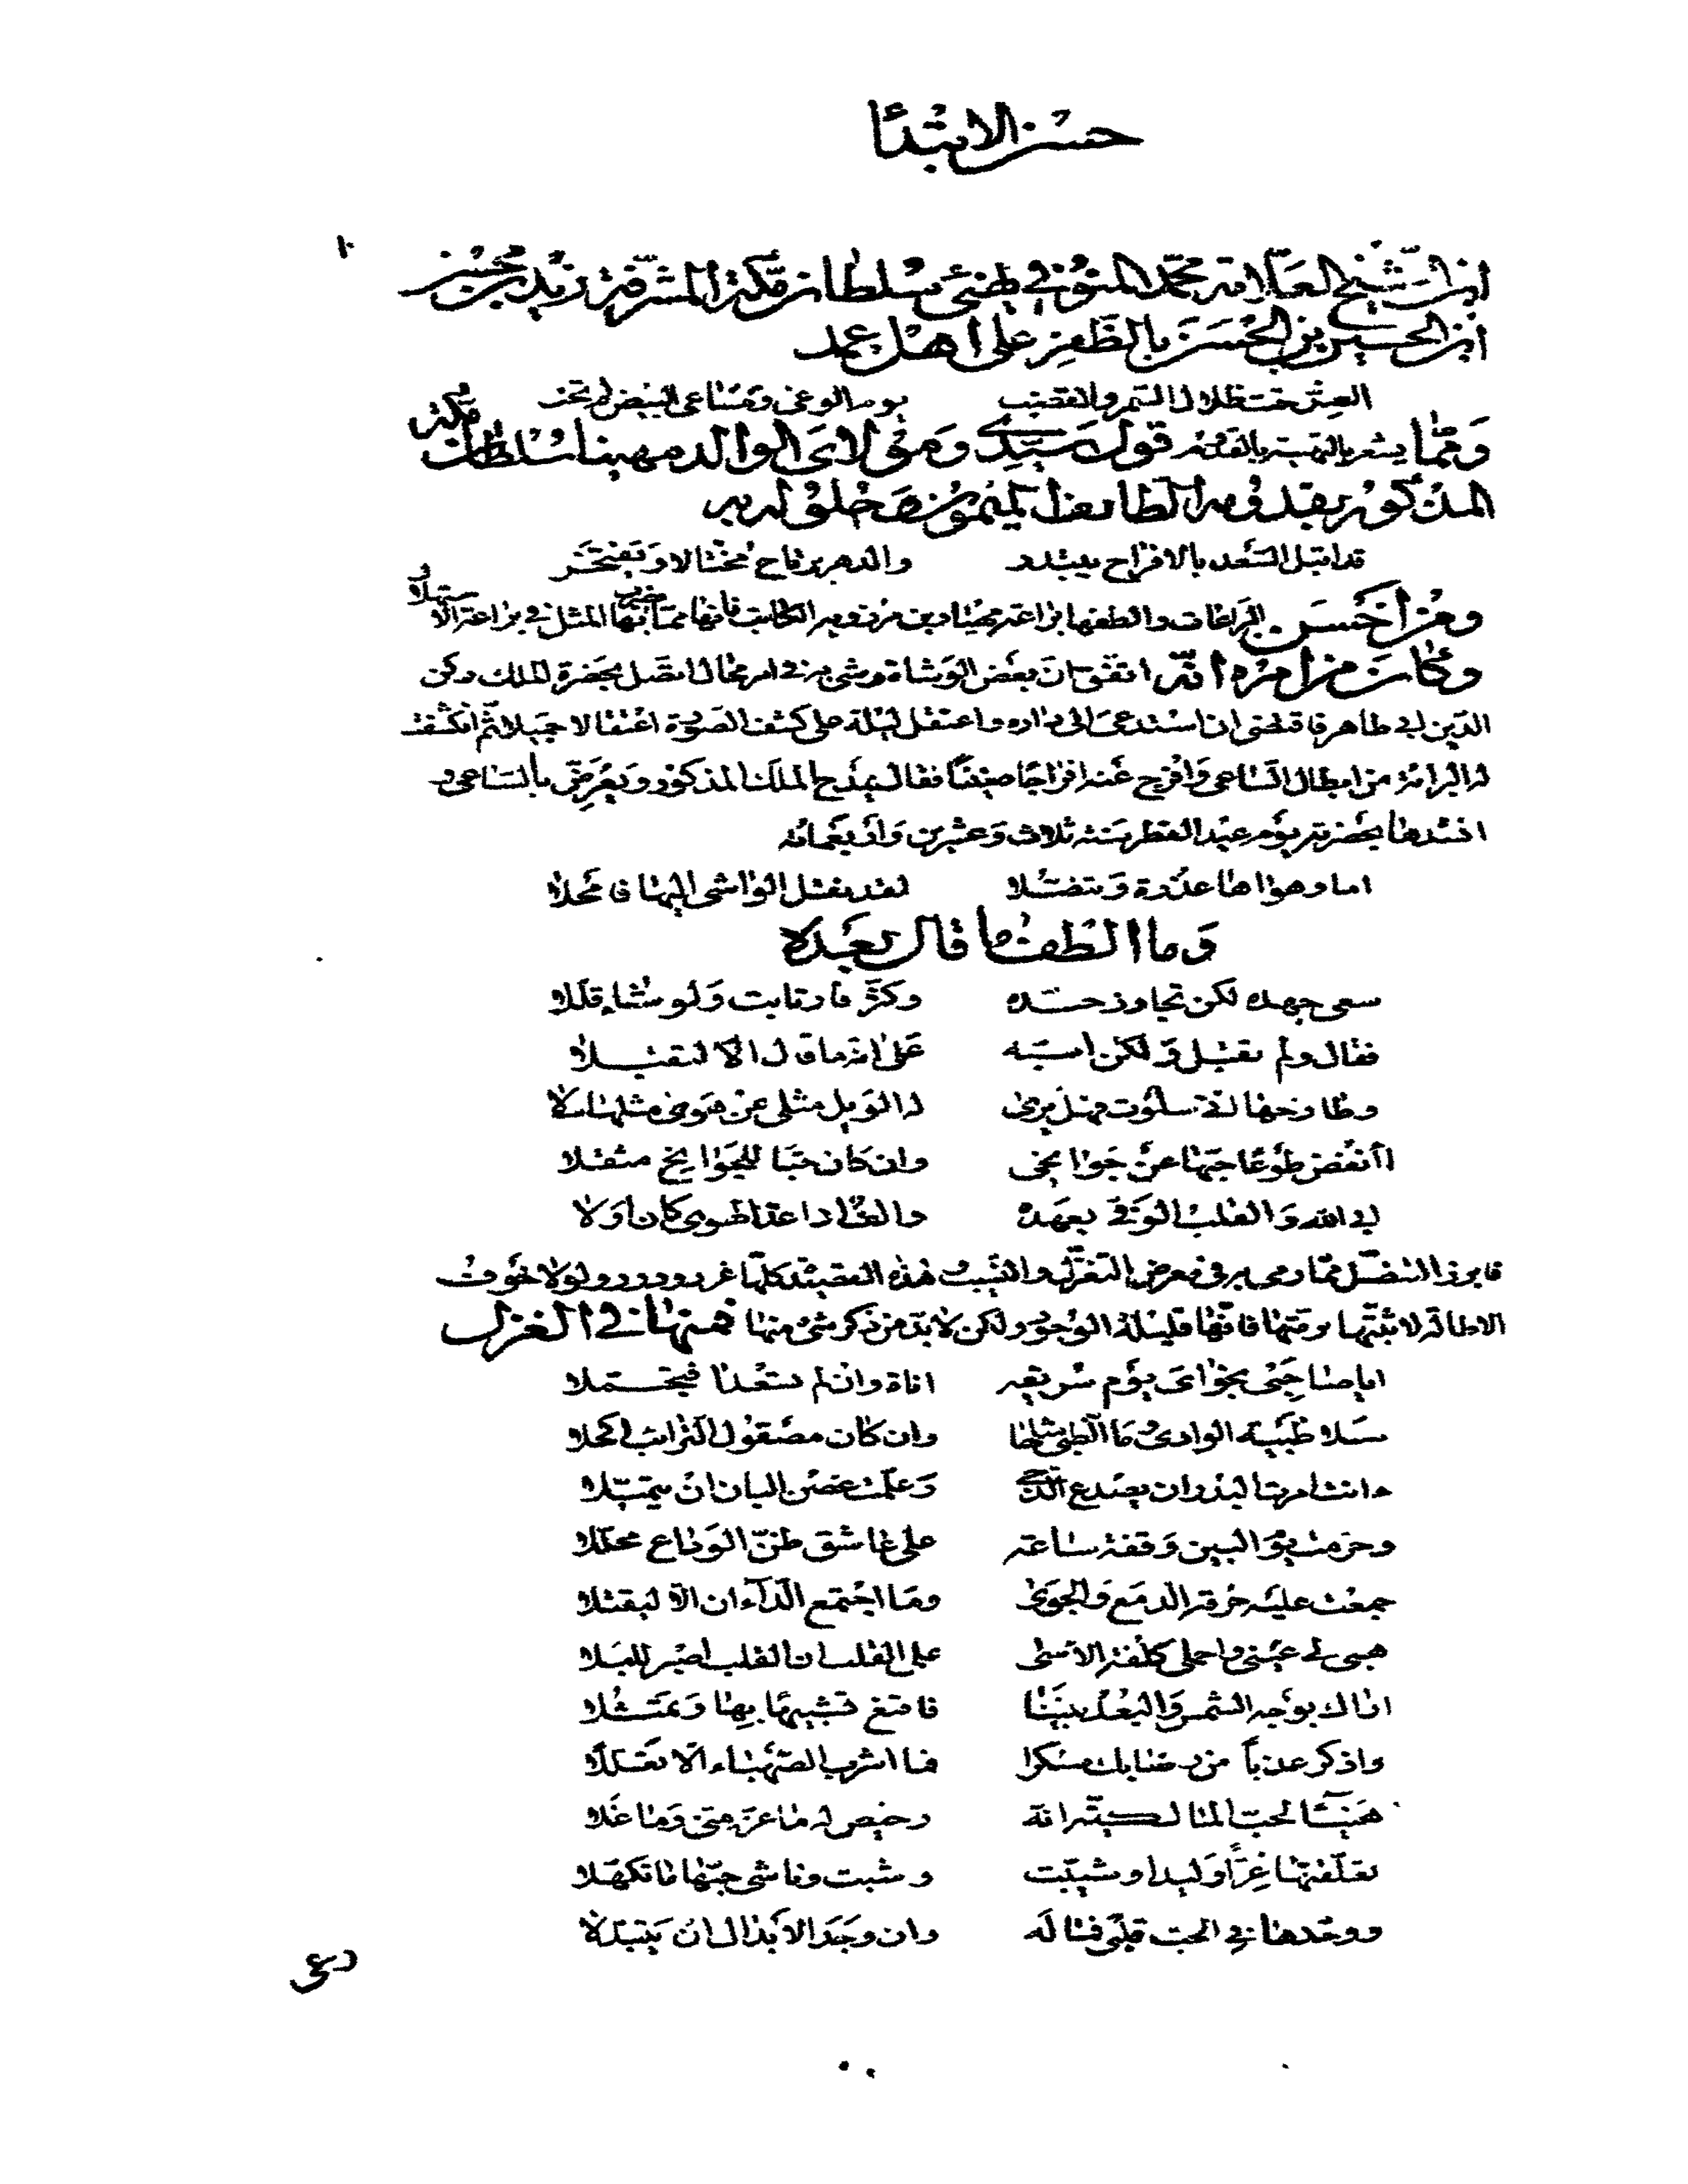 حسن الابتدأ
١٠
ابن الشيخ العلامة محمد المنوفي يهنئ سلطان مكة المشرفة زيد بن محسن
ابن الحسين بن الحسن بالظفر على اهل
العز تحت ظلال السمر والقضب يوم الوغى ومساعي البيض لم تخب
ومما يشعر بالتهنية بالقدوم قول سيدي ومولاي الوالد مهنيا سلطان مكة
المذكور بقدومه الطائف
قد اقبل السعد بالافراح يبتدر والدهر يرتاح مختالا ويفتخر
ومن احسن البراعات والطفها براعة مهيار بن مرزويه الكاتب فانها مما يضرب بها المثل في براعة الاستهلال
وكان من امره انه اتفق ان بعض الوشاة وشى به في امر محال اتصل بحضرة الملك ركن
الدين ابي طاهر فاقتضى ان استدعى الى داره واعتقل ليلة على كشف الصورة اعتقالا جميلا ثم انكشفت
له البراءة من ابطال الساعي وافرج عنه افراجا فقال يمدح الملك المذكور ويعرض بالساعي و
انشدها بحضرته يوم عيد الفطر سنة ثلاث وعشرين واربعمائه
اما وهواها عذرة وتنصلا لقد نقل الواشي اليها فامحلا
وما الطف ما قال بعده
سعى جهده لكن تجاوز حده وكثر فارتابت ولو شاء قللا
فقال ولم تقبل ولكن على انه ما قال الا لتقبلا
وطارحها اني سلوت فهل يرى له الويل مثلي عن هوى مثلها سلا
اأنفض طوعا حبها عن جوانحي وان كان حبا للجوانح مثقلا
ابى الله والقلب الوفي بعهده والف اذا عد الهوى كان اولا
فابرز التنصل مما رمى به في معرض التغزل والنسيب وهذه القصيدة كلها غرر ودرر ولولا خوف
الاطالة لاثبتها برمتها فانها قليلة الوجود ولكن لا بد من ذكر شيء منها فمنها في الغزل
ايا صاحبي نجواي يوم سويقة اناة وان لم تسعدا فتجملا
سلا ظبية الوادي وما الظبي مثلها وان كان مصقول الترائب اكحلا
اانت امرت البدر ان يصدع الدجى وعلمت غصن البان ان يتميلا
وحرمت يوم البين وقفة ساعة على عاشق ظن الوداع محللا
جمعت عليه حرقة الدمع والجوى وما اجتمع الداءان الا ليقتلا
هبي لي عيني واحملي كلفة الاسى على القلب ان القلب اصبر للبلا
اراك بوجه الشمس والبعد بيننا فاقنع تشبيها بها وتمثلا
واذكر عذبا من رضابك مسكرا فما اشرب الصهباء الا تعللا
هنيئا لحب المالكية انه رخيص له ما عز مني وما غلا
تعلقتها غرا وليدا وشيبت وشبت وناشي حبها ما تكهلا
ووحدها في الحب قلبي فما له وان وجد الابدال ان يتبدلا
رعى